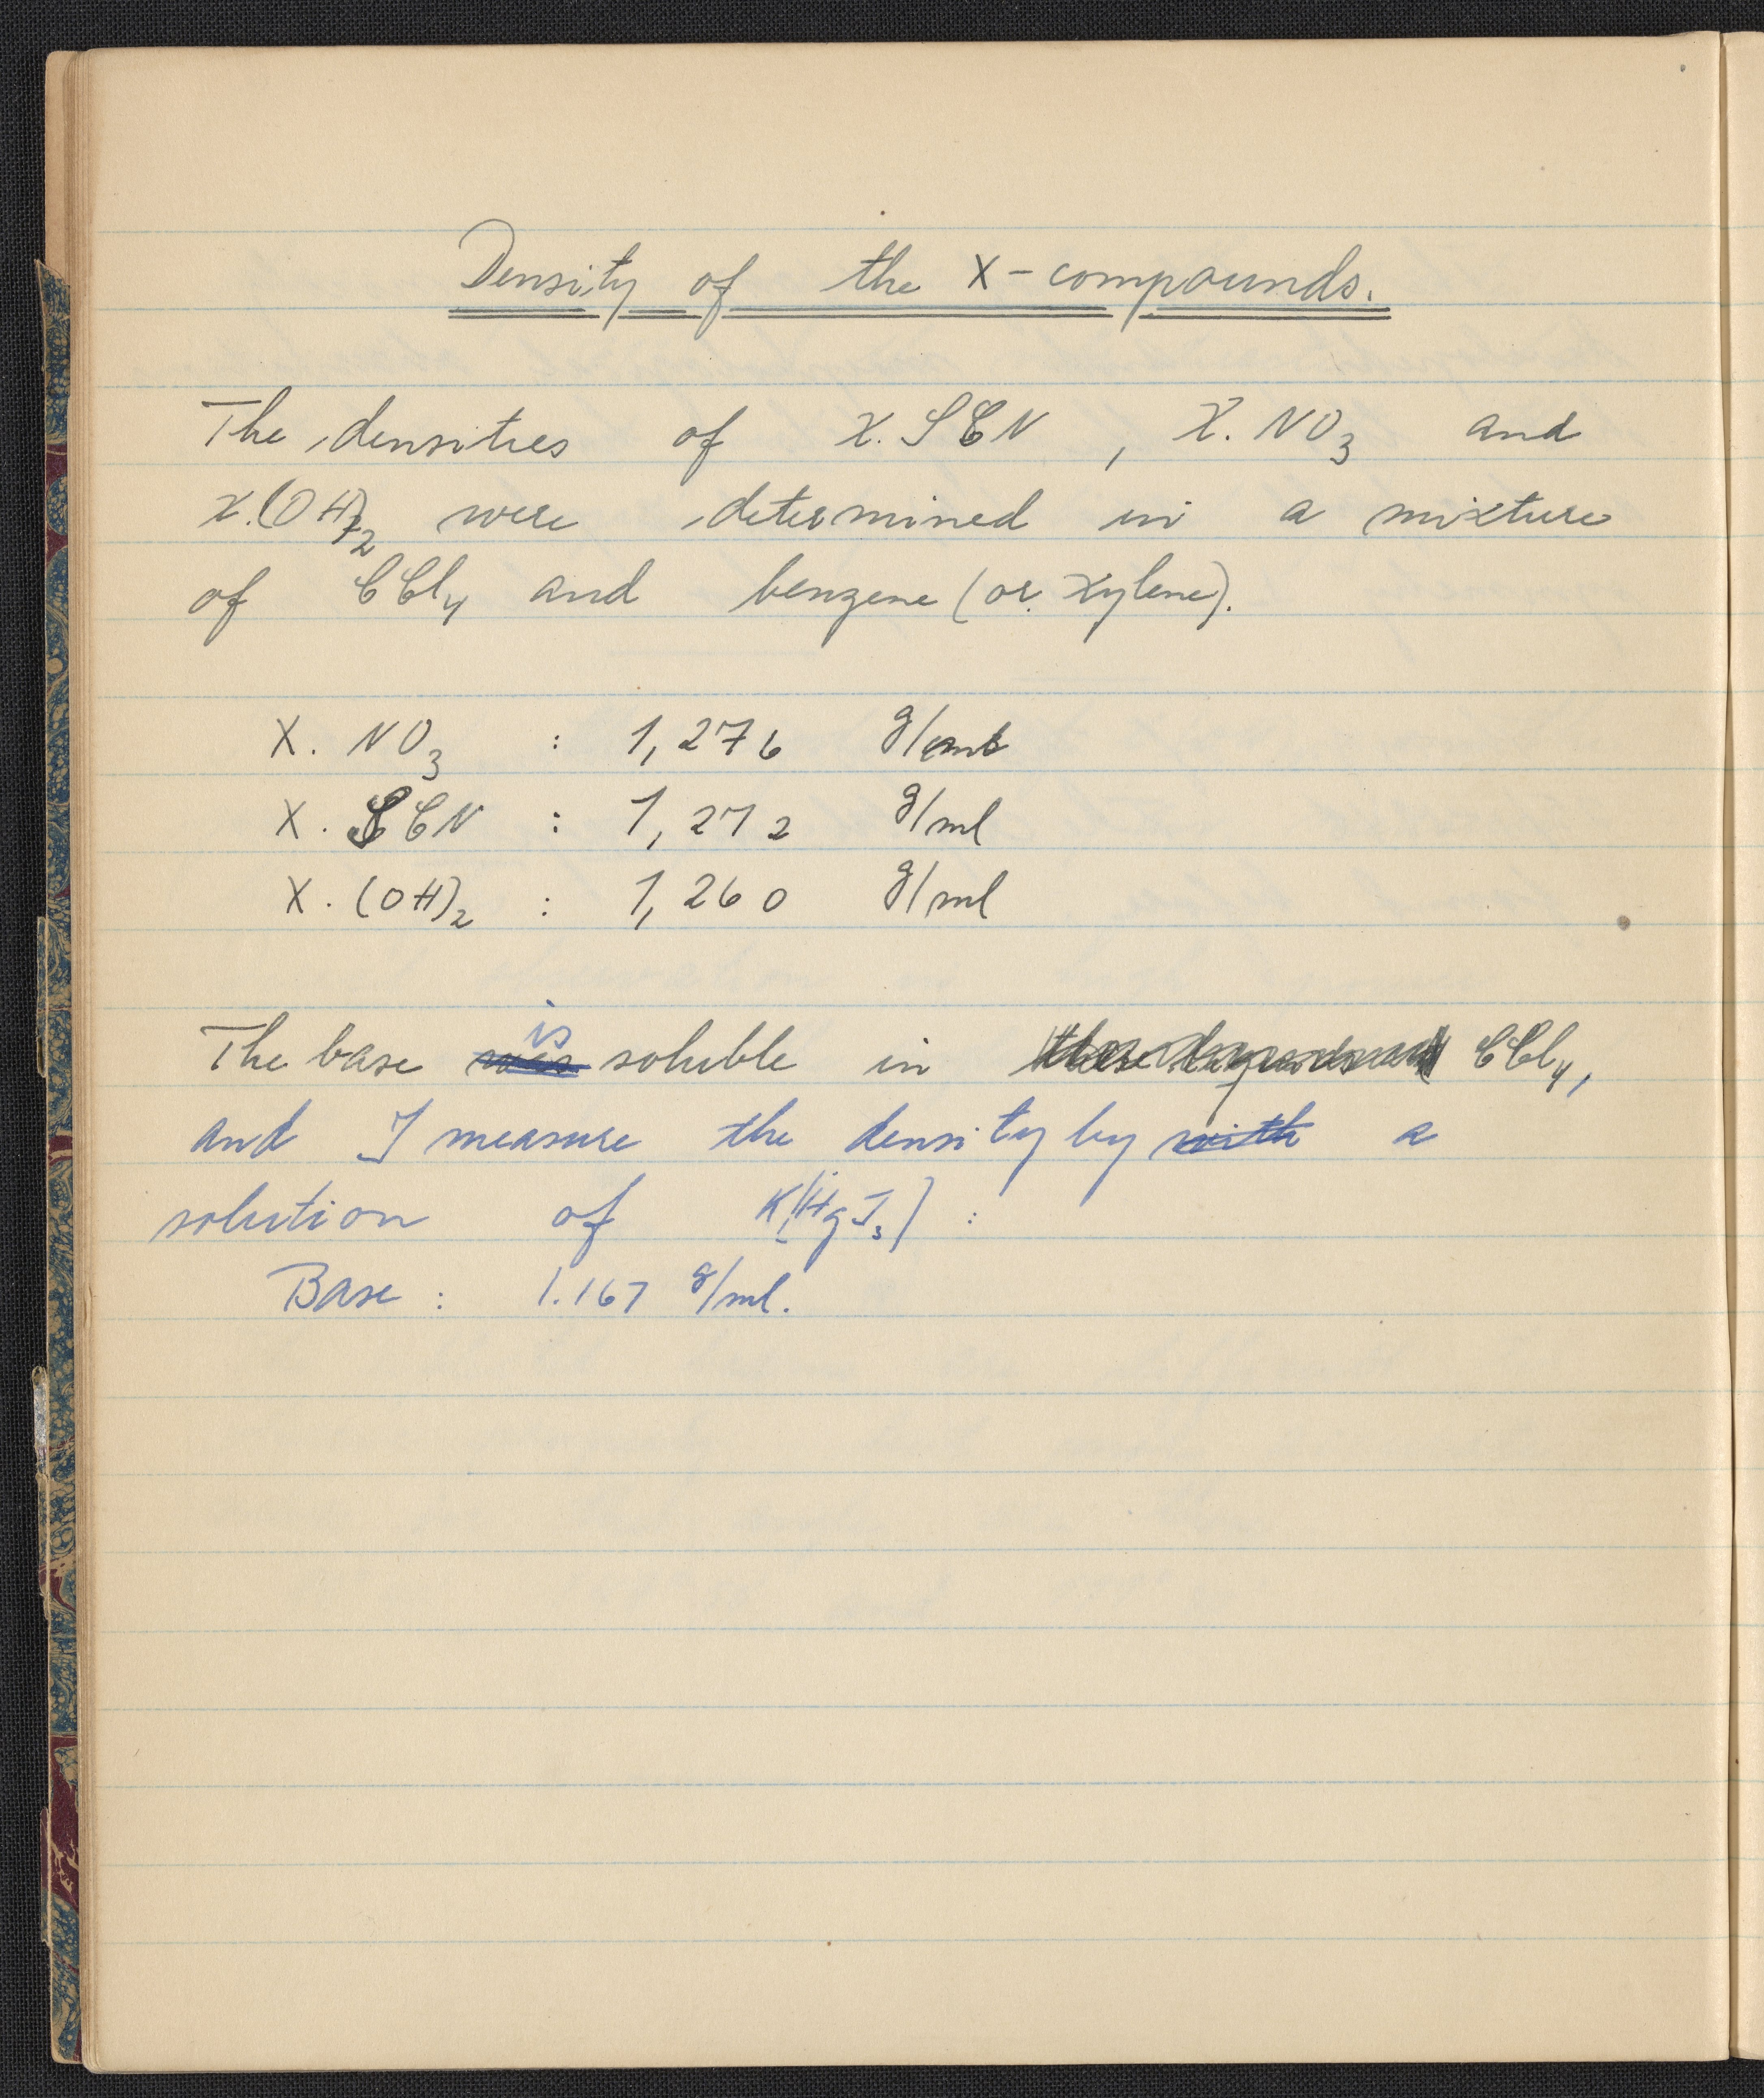 Density of the X-compounds.
The densities of X.SCN, X.NO3 and
X.(OH)2 were determined in a mixture
of CCl4 and benzene (or xylene).
X. NO3 : 1,276 g/ml
X. SCN : 1,272 g/ml
X. (OH)2 : 1,260 g/ml
is
The base was soluble in these CCl4,
and I measure the density by with a
solution of K[HgJ3] :
Base : 1.167 g/ml.